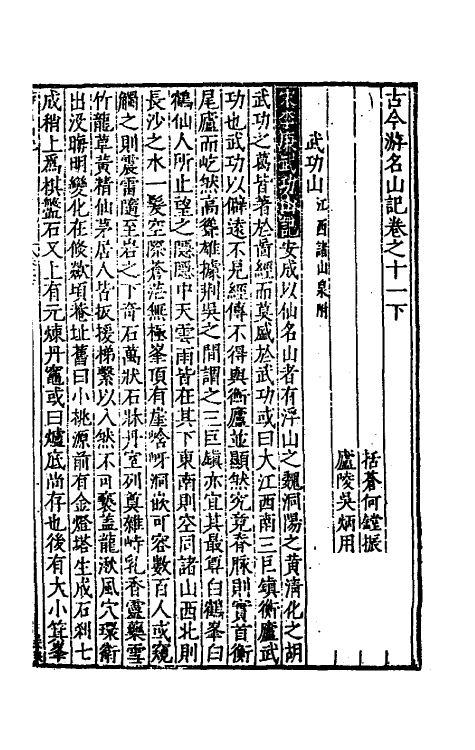 古今游名山記卷之十一下
括蒼何鏜振
廬陵吳炳用
武功山江西諸山泉附
宋李 武功山記安成以仙名山者有浮山之魏洞陽之黄清化之胡
武功之葛皆著於圖經而莫盛於武功或曰大江西南三巨鎮衡廬武
功也武功以僻遠不見經傳不得與衡廬並顯然究竟脊脉則實首衡
尾廬而屹然高聳雄據荆吳之間謂之三巨鎮亦宜其最尊白鶴峯白
鶴仙人所止望之隱隱中天雲雨皆在其下東南則空同諸山西北則
長沙之水一髮空際蒼茫無極峯頂有崖嵱岈洞嵌可容數百人或窺
觸之則震雷隨至岩之下奇石萬狀石牀丹室列奠雜峙乳香靈藥雪
竹龍草黄精仙茅居人皆扳援梯繫以入然不可褻蓋龍湫風穴環衛
出没晦明變化在倐歘頃菴址舊曰小桃源前有金燈塔生成石刹七
成稍上爲棋盤石又上有元煉丹竈或曰爐底尚存也後有大小箕峯